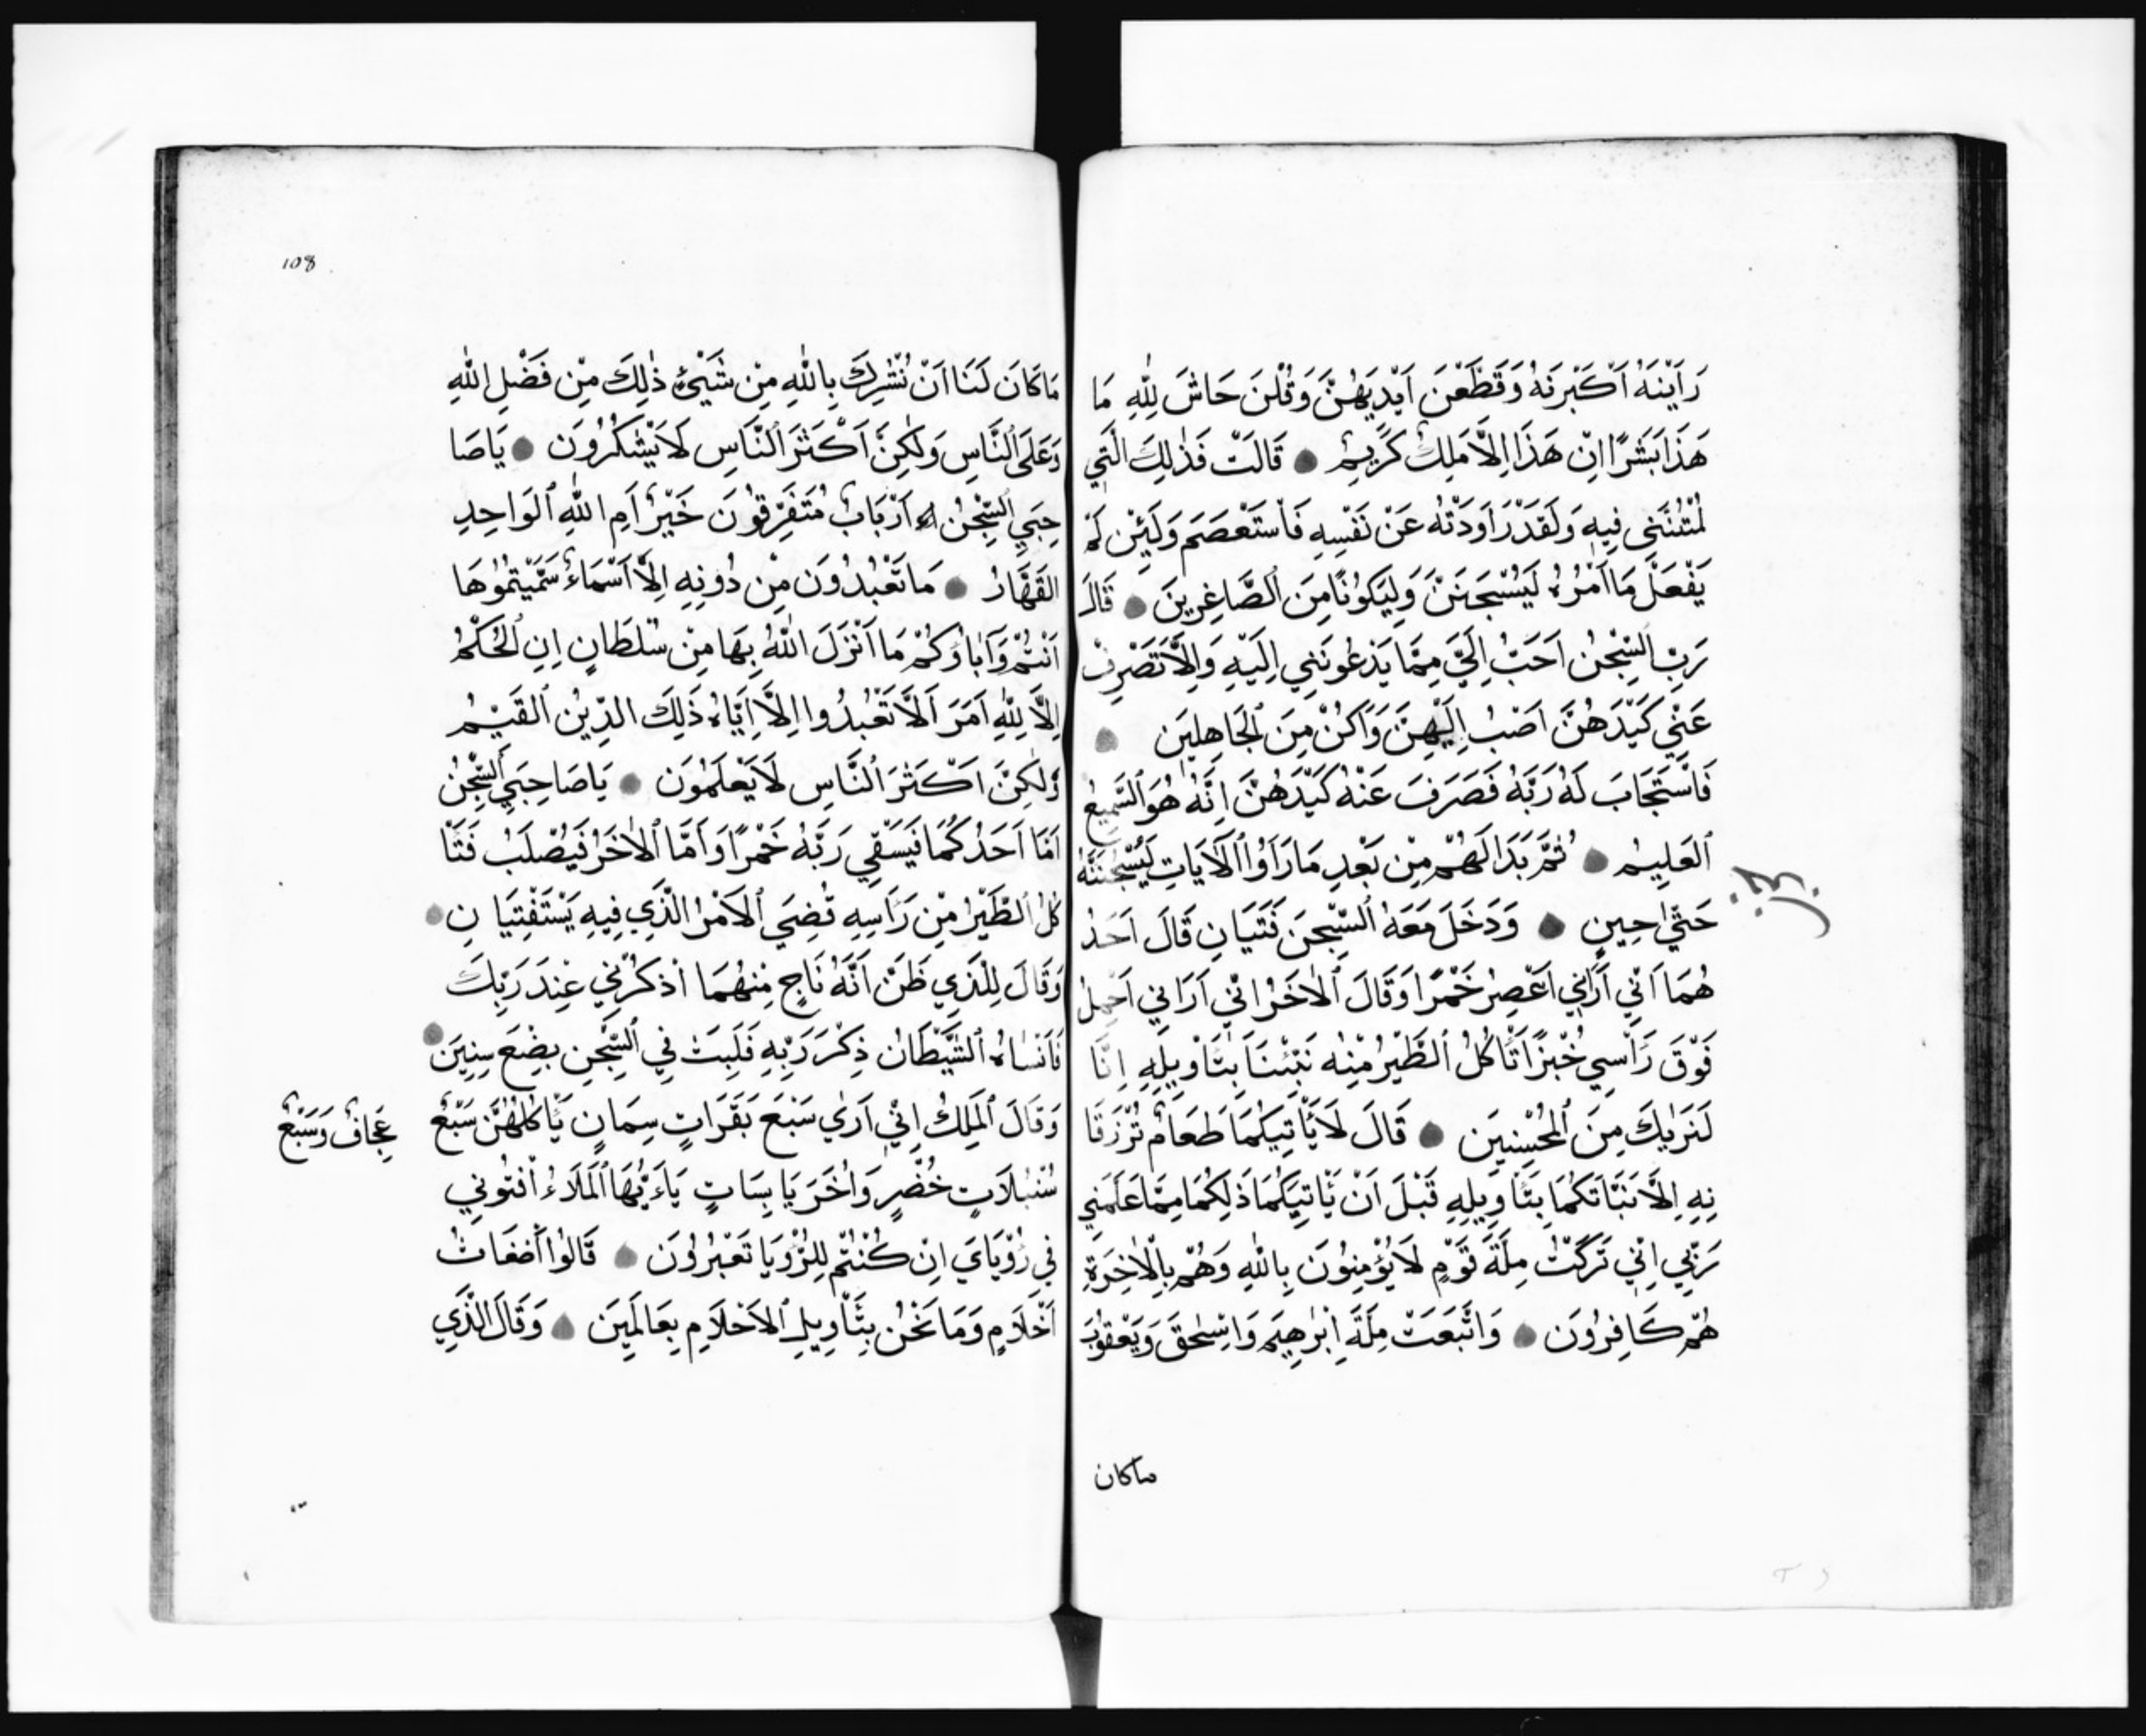 رَاَيْنَهُ اَكْبَرنَهُ وَقَطَّعْنَ اَيْدِيَهُنَّ وَقُلْنَ حَاشَ لِلّٰهِ مَا
هَذَا بَشَرًا اِنْ هَذَا اِلَّا مَلِكٌ كَرِيمٌ ● قَالَتْ فَذٰلِكَ الَّتِي
لُمْتُنَّنِي فِيهِ وَلَقَدْ رَاوَدْتُهُ عَنْ نَفْسِهِ فَاسْتَعْصَمَ وَلَئِنْ لَمْ
يَفْعَلْ مَا اَمُرُهُ لَيُسْجَنَنَّ وَلِيَكُونًا مِنَ الصَّاغِرِينَ ● قَالَ
رَبِّ السِّجْنُ اَحَبُّ اِلَيَّ مِمَّا يَدْعُونَنِي اِلَيْهِ وَاِلَّا تَصْرِفْ
عَنِّي كَيْدَهُنَّ اَصْبُ اِلَيْهِنَّ وَاَكُنْ مِنَ الجَاهِلِينَ ●
فَاسْتَجَابَ لَهُ رَبَّهُ فَصَرَفَ عَنْهُ كَيْدَهُنَّ اِنَّهُ هُوَ السَّمِيعُ
العَلِيمُ ● ثُمَّ بَدَا لَهُمْ مِنْ بَعْدِ مَا رَاَوُا الْاَيَاتِ لَيُسْجُنَنَّهُ
حَتّٰى حِينٍ ● وَدَخَلَ مَعَهُ السِّجْنَ فَتَيَانِ قَالَ اَحَدُ
هُمَا اَنِّي اَرَانِي اَعْصِرُ خَمْرًا وَقَالَ الْاٰخَرُ انِّي اَرَانِي اَحْمِلُ
فَوْقَ رَاْسِي خُبْزًا تَاْكُلُ الطَّيْرُ مِنْهُ نَبِّئْنَا بِتَاْوِيلِهِ اِنَّا
لَنَرٰيكَ مِنَ الْمُحْسِنِينَ ● قَالَ لَا يَاْتِيكُمَا طَعَامٌ تُرْزَقَا
نِهِ اِلَّا نَبَّاتَكُمَا بِتَاْوِيلِهِ قَبْلَ اَنْ يَّاْتِيَكُمَا ذَلِكُمَا مِمَّا عَلَّمَنِي
رَبِّي اِنِّي تَرَكْتُ مِلَّةَ قَوْمٍ لَا يُؤْمِنُونَ بِاللّٰهِ وَهُمْ بِالْاٰخِرَةِ
هُمْ كَافِرُونَ ● وَاتَّبَعَتْ مِلَّةَ اِبْرٰهِيمَ وَاِسْحٰقَ وَيَعْقُوْبَ
ماكان
108
مَاكَانَ لَنَا اَنْ نُشْرِكَ بِاللّٰهِ مِنْ شَيْئٍ ذٰلِكَ مِنْ فَضْلِ اللّٰهِ
وَعَلَى النَّاسِ وَلٰكِنَّ اَكْثَرَ النَّاسِ لَا يَشْكُرُونَ ● يَاصَا
حِبَيِ السِّجْنِ اَرْبَابٌ مُتَفَرِّقُونَ خَيْرٌ اَمِ اللّٰهِ الْوَاحِدِ
القَهَّارُ ● مَا تَعْبُدُونَ مِنْ دُونِهِ اِلَّا اَسْمَاءً سَمَّيْتُمُوهَا
اَنْتُمْ وَآبَاؤُكُمْ مَا اَنْزَلَ اللّٰهُ بِهَا مِنْ سُلْطَانٍ اِنِ الحُكْمُ
اِلَّا لِلّٰهِ اَمَرَ اَلَّا تَعْبُدُوا اِلَّا اِيَّاهُ ذَلِكَ الدِّينُ القَيِّمُ
وَلٰكِنَّ اَكْثَرَ النَّاسِ لَا يَعْلَمُونَ ● يَاصَاحِبَيِ السِّجْنِ
اَمَّا اَحَدُكُمَا فَيَسْقِي رَبَّهُ خَمْرًا وَاَمَّا الْاٰخَرُ فَيُصْلَبُ فَتَا
كُلُ الطَّيْرُ مِنْ رَاسِهِ قُضِيَ الْاَمْرُ الَّذِي فِيهِ يَسْتَفْتِيَا نِ ●
وَقَالَ لِلَّذِي ظَنَّ اَنَّهُ نَاجٍ مِنْهُمَا اذْكُرْنِي عِنْدَ رَبِّكَ
فَاَنْسَاهُ الشَّيْطَانُ ذِكْرَ رَبِّهِ فَلَبِثَ فِي السِّجْنِ بِضْعَ سِنِينَ ●
وَقَالَ الْمَلِكُ اِنِّي اَرٰى سَبْعَ بَقَرَاتٍ سِمَانٍ يَاْكُلُهُنَّ سَبْعٌ
عِجَافٌ وَسَبْعٌ
سُنْبُلَاتٍ خُضْرٍ وَاُخَرَ يَابِسَاتٍ يَاءَيُّهَا الْمَلَاءُ افْتُونِي
فِي رُؤْيَايَ اِنْ كُنْتُمْ لِلرُّؤْيَا تَعْبُرُونَ ● قَالُوا أَضْغَاثُ
اَحْلَامٍ وَمَا نَحْنُ بِتَاْوِيلِ الاَحْلَامِ بِعَالِمِينَ ● وَقَالَ الَّذِي